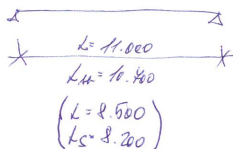 L = 11.000
L₁₁ = 10.700
L = 8.500
L₅ = 8.200